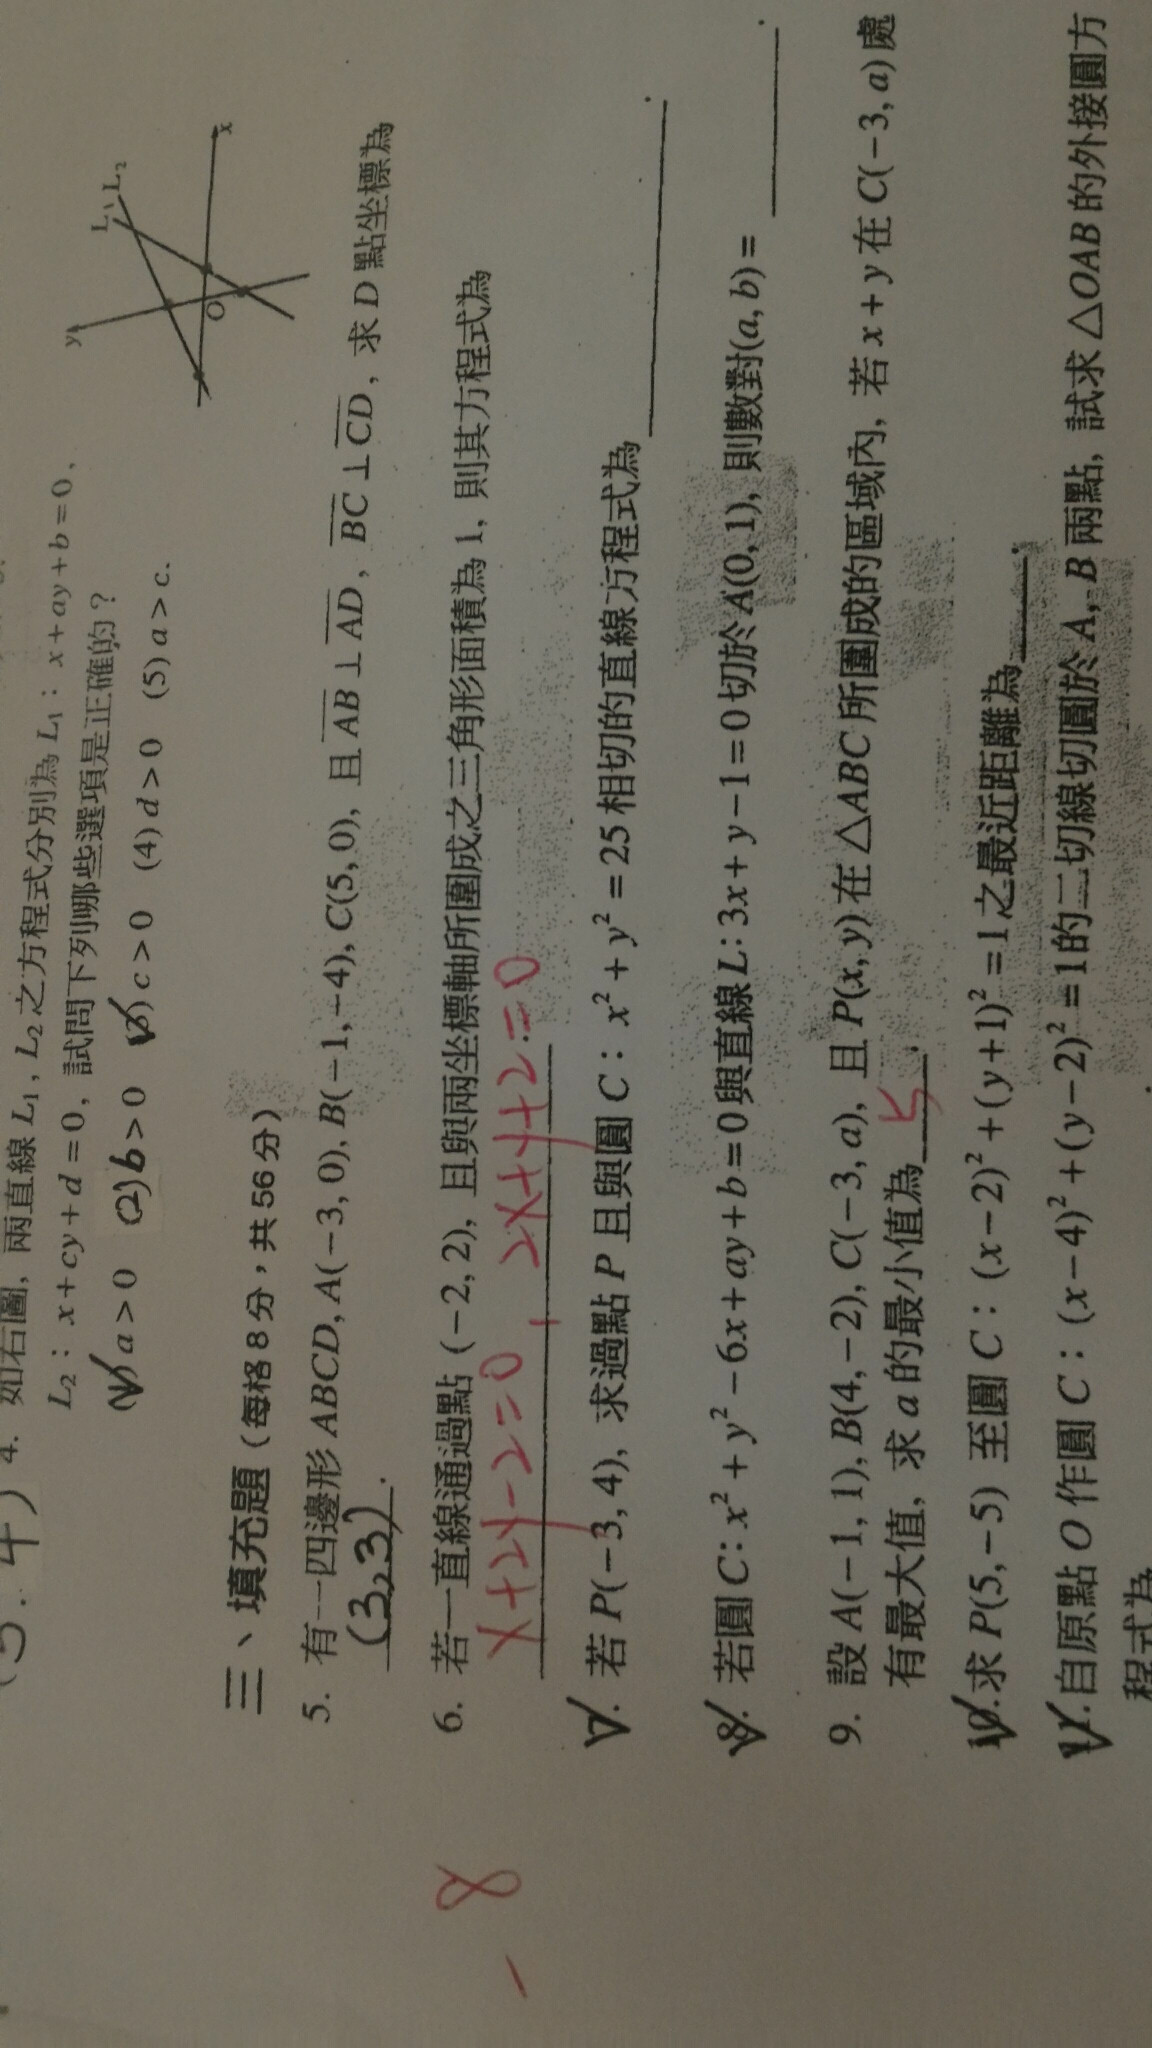 (3.4)
4. 如右圖, 兩直線 L₁, L₂ 之方程式分別為 L₁: x+ay+b=0,
L₂: x+cy+d=0, 試問下列哪些選項是正確的?
(1) a>0 (2) b>0 (3) c>0 (4) d>0 (5) a>c.
y
L₁
L₂
O
x
三、填充題 (每格8分, 共56分)
5. 有一四邊形 ABCD, A(−3, 0), B(−1, −4), C(5, 0), 且 AB ⊥ AD, BC ⊥ CD, 求 D 點坐標為
(3,3).
6. 若一直線通過點 (−2, 2), 且與兩坐標軸所圍成之三角形面積為 1, 則其方程式為
x+2y−2=0, 2x+y+2=0
−8
7. 若 P(−3, 4), 求過點 P 且與圓 C: x²+y²=25 相切的直線方程式為 .
8. 若圓 C: x²+y²−6x+ay+b=0 與直線 L: 3x+y−1=0 切於 A(0, 1), 則數對(a, b)= .
9. 設 A(−1, 1), B(4, −2), C(−3, a), 且 P(x, y) 在 △ABC 所圍成的區域內, 若 x+y 在 C(−3, a) 處
有最大值, 求 a 的最小值為 5 .
10. 求 P(5, −5) 至圓 C: (x−2)²+(y+1)²=1 之最近距離為 .
11. 自原點 O 作圓 C: (x−4)²+(y−2)²=1的二切線切圓於 A, B 兩點, 試求 △OAB 的外接圓方
程式為 .